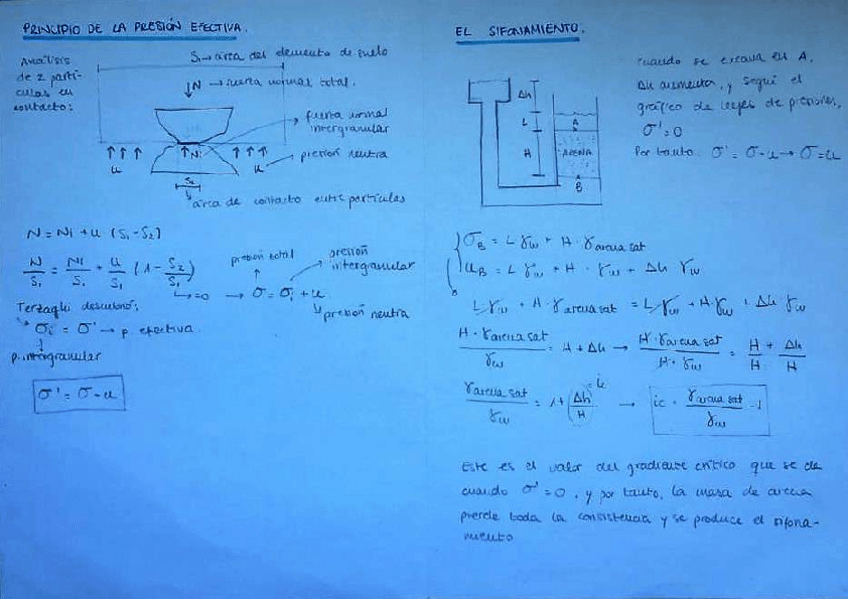 PRINCIPIO DE LA PRESIÓN EFECTIVA.
Análisis
de 2 partí-
culas en
contacto:
S₁→ área del elemento de suelo
N → fuerza normal total.
fuerza normal
intergranular
Ni
presión neutra
u
u
S₂
área de contacto entre partículas
N = Ni + u (S₁-S₂)
N/S₁ = Ni/S₁ + u/S₁ (1 - S₂/S₁)
→≈0 → σ = σi + u
presión total
presión
intergranular
presión neutra
Terzaghi descubrió:
σi = σ' → p. efectiva.
p. intergranular
σ' = σ - u
EL SIFONAMIENTO.
Δh
L
H
A
ARENA
B
cuando se excava en A,
Δh aumenta, y según el
gráfico de leyes de presiones,
σ'=0
Por tanto. σ' = σ - u → σ = u
σB = L γw + H · γarena sat
uB = L γw + H · γw + Δh γw
L γw + H · γarena sat = L γw + H · γw + Δh γw
H · γarena sat / γw = H + Δh → H · γarena sat / H · γw = H/H + Δh/H
γarena sat / γw = 1 + (Δh/H) = ic → ic = γarena sat / γw - 1
Este es el valor del gradiente crítico que se da
cuando σ'=0, y por tanto, la masa de arena
pierde toda la consistencia y se produce el sifona-
miento